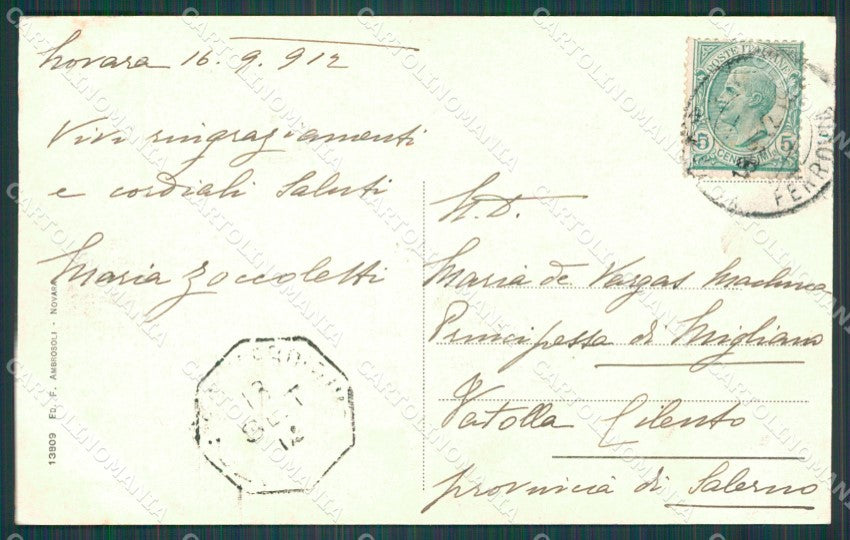 Novara 16. 9. 912
Vivi ringraziamenti
e cordiali Saluti
Maria Zoccoletti
N. D.
Maria de Vargas Machuca
Principessa di Migliano
Vatolla Cilento
provincia di Salerno
POSTE ITALIANE
5 5
CENTESIMI
FERROVIA
13909 ED. F. AMBROSOLI - NOVARA
CARTOLINOMANIA